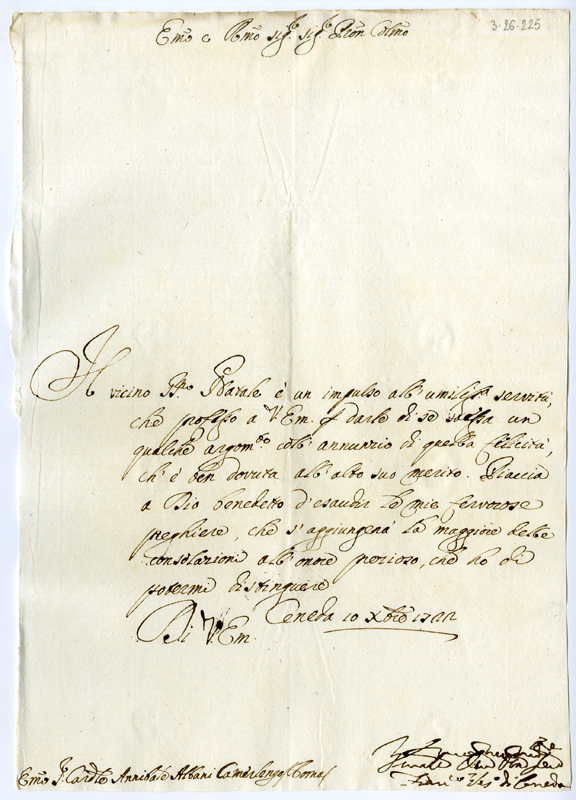 3-26-225
Emo e Rmo sig.r sig.r Pron Colmo
Il vicino SS.mo Natale è un impulso all' umiliss.a servitù,
che professo a V. Em. p darle di se stessa un
qualche argom.to coll' annunzio di quella felicità,
ch' è ben dovuta all' alto suo merito. Piaccia
a Dio benedetto d' esaudir le mie fervorose
preghiere, che s' aggiungerà la maggiore delle
consolazioni all' onore pezioso, che ho di
potermi distinguere
Di V. Em. Ceneda 10 Xbre 1722
Umil.mo
Fran.co Ves.o di Ceneda
Emo S.r Card.le Annibale Albani Camerlengo Roma